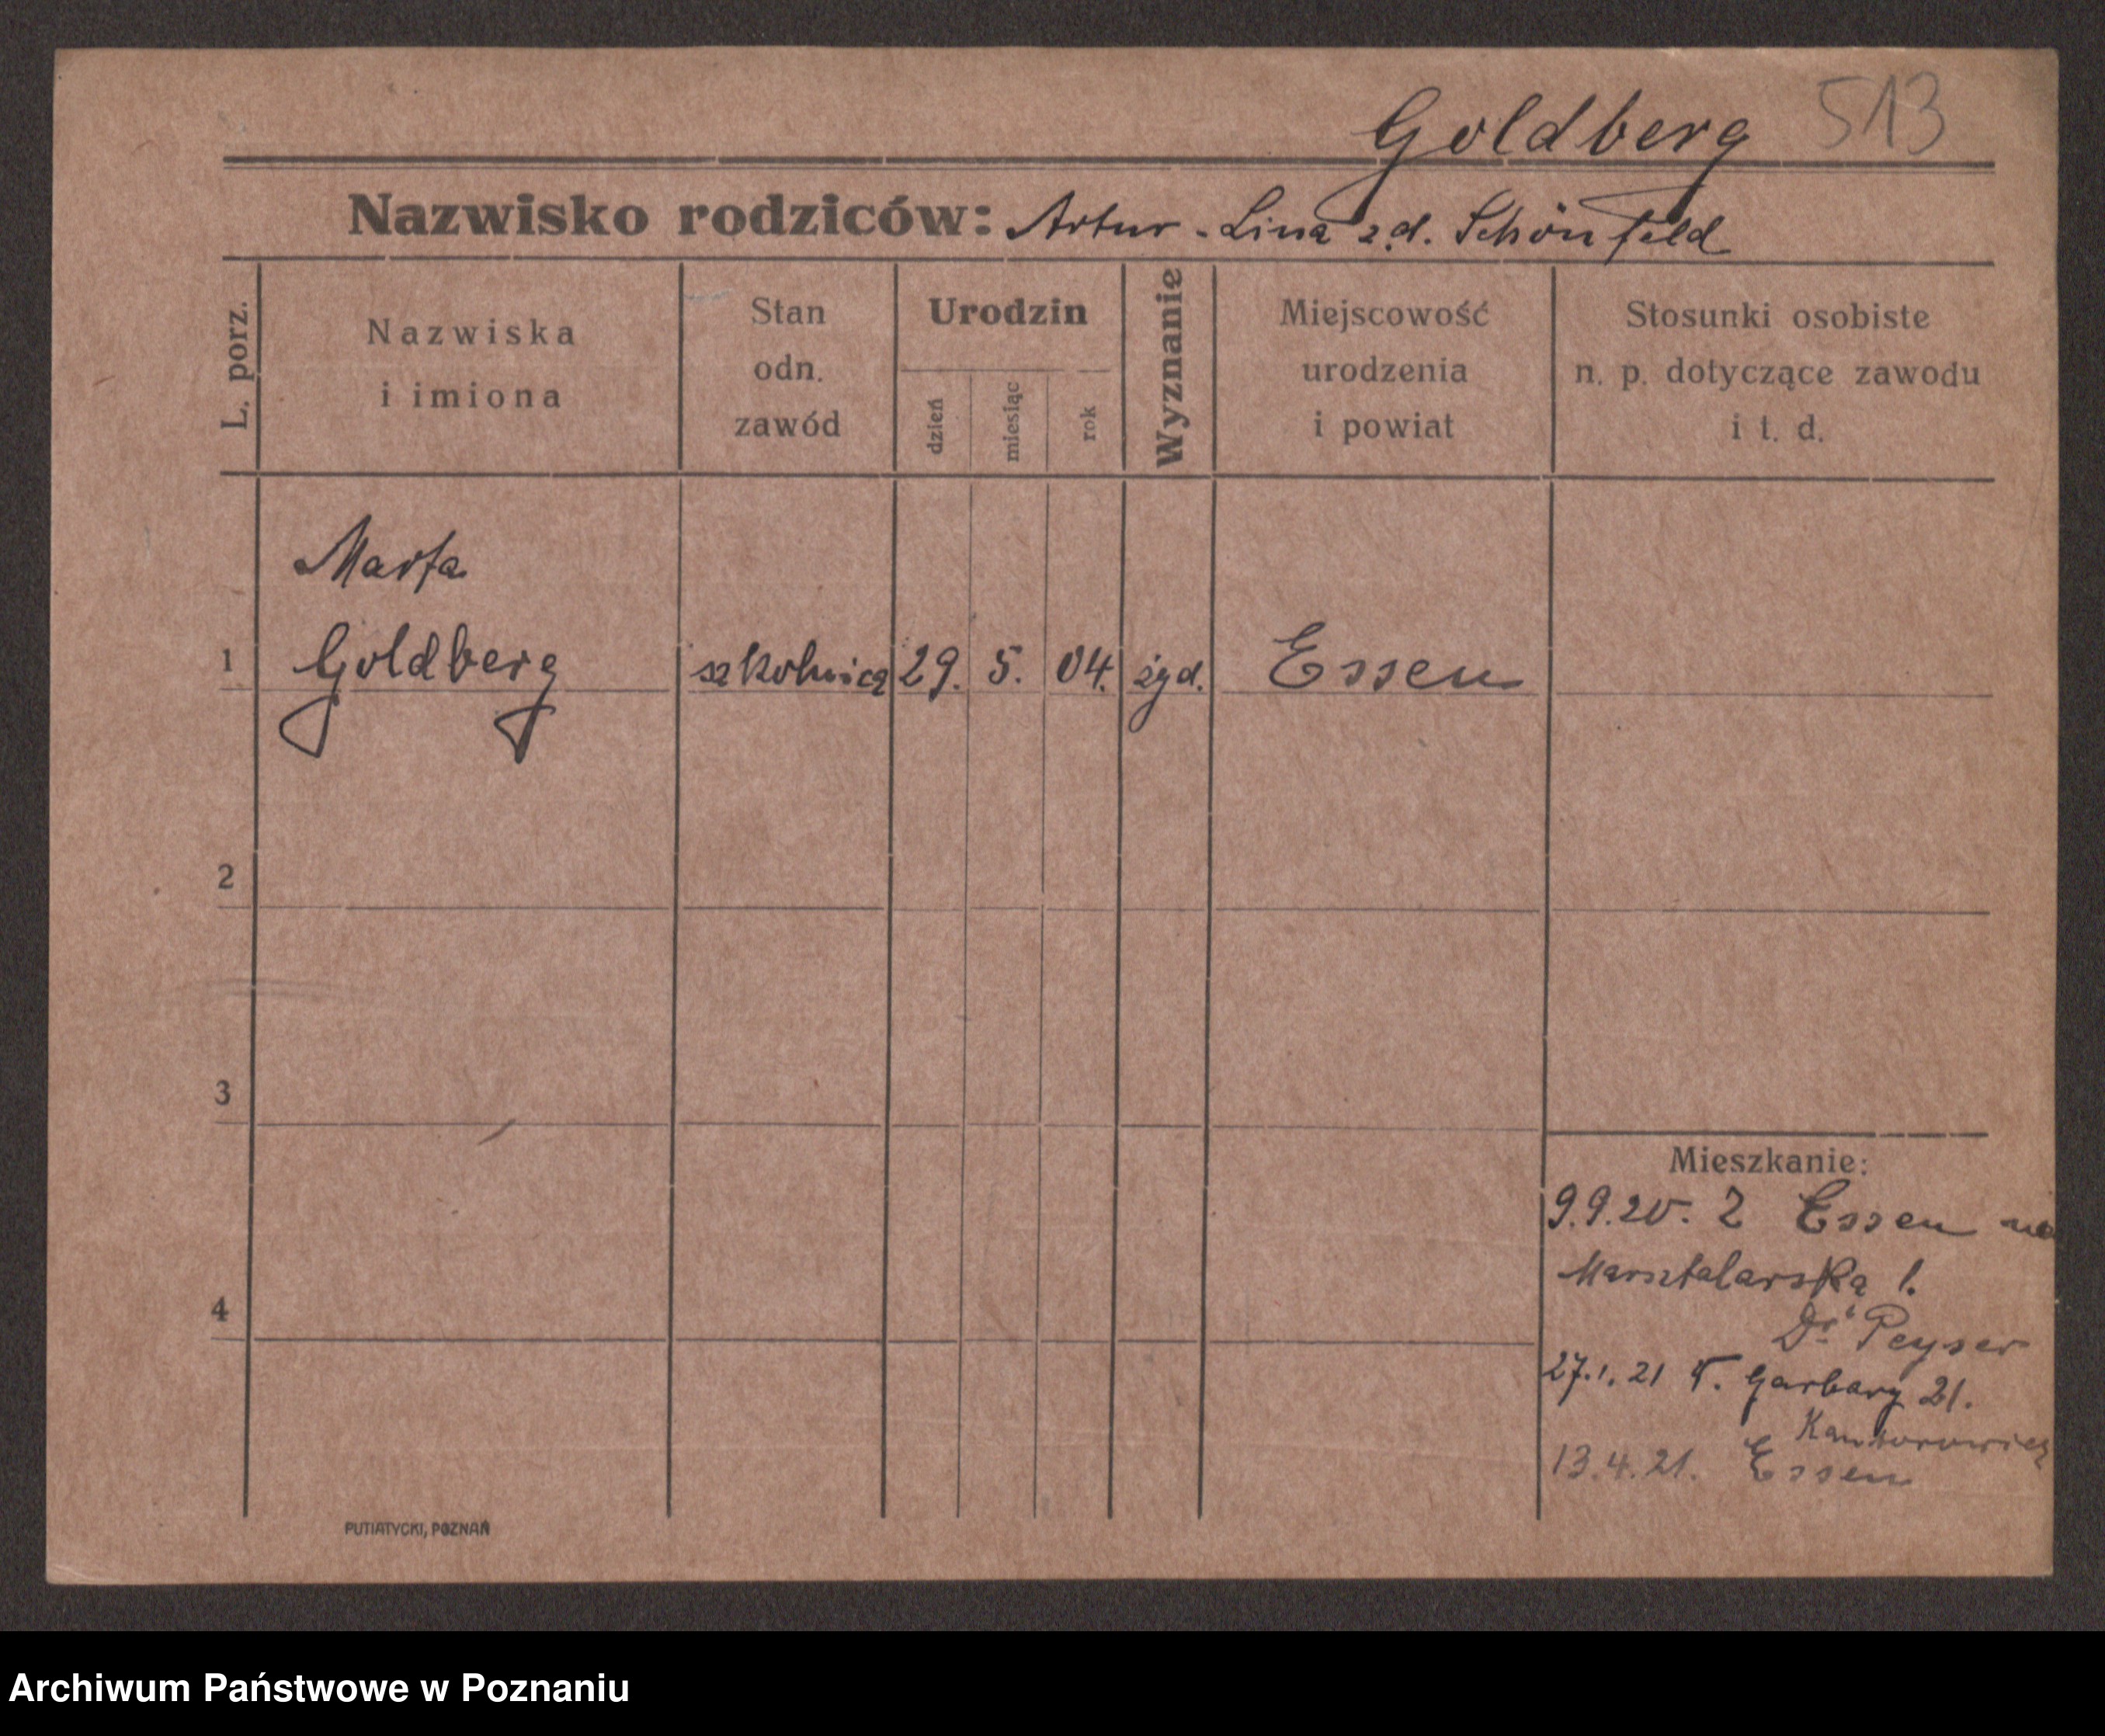 Goldberg 513
Nazwisko rodziców: Artur - Lina z.d. Schönfeld
L. porz.
Nazwiska
i imiona
Stan
odn.
zawód
Urodzin
dzień
miesiąc
rok
Wyznanie
Miejscowość
urodzenia
i powiat
Stosunki osobiste
n. p. dotyczące zawodu
i t. d.
Marta
1 Goldberg szkolnica 29. 5. 04. żyd. Essen
2
3
4
Mieszkanie:
9.9.20. Z Essen na
Marsztalarską 1.
Dr Peyser
27.1.21 Garbary 21.
Kantorowicz
13.4.21. Essen
PUTIATYCKI, POZNAŃ
Archiwum Państwowe w Poznaniu